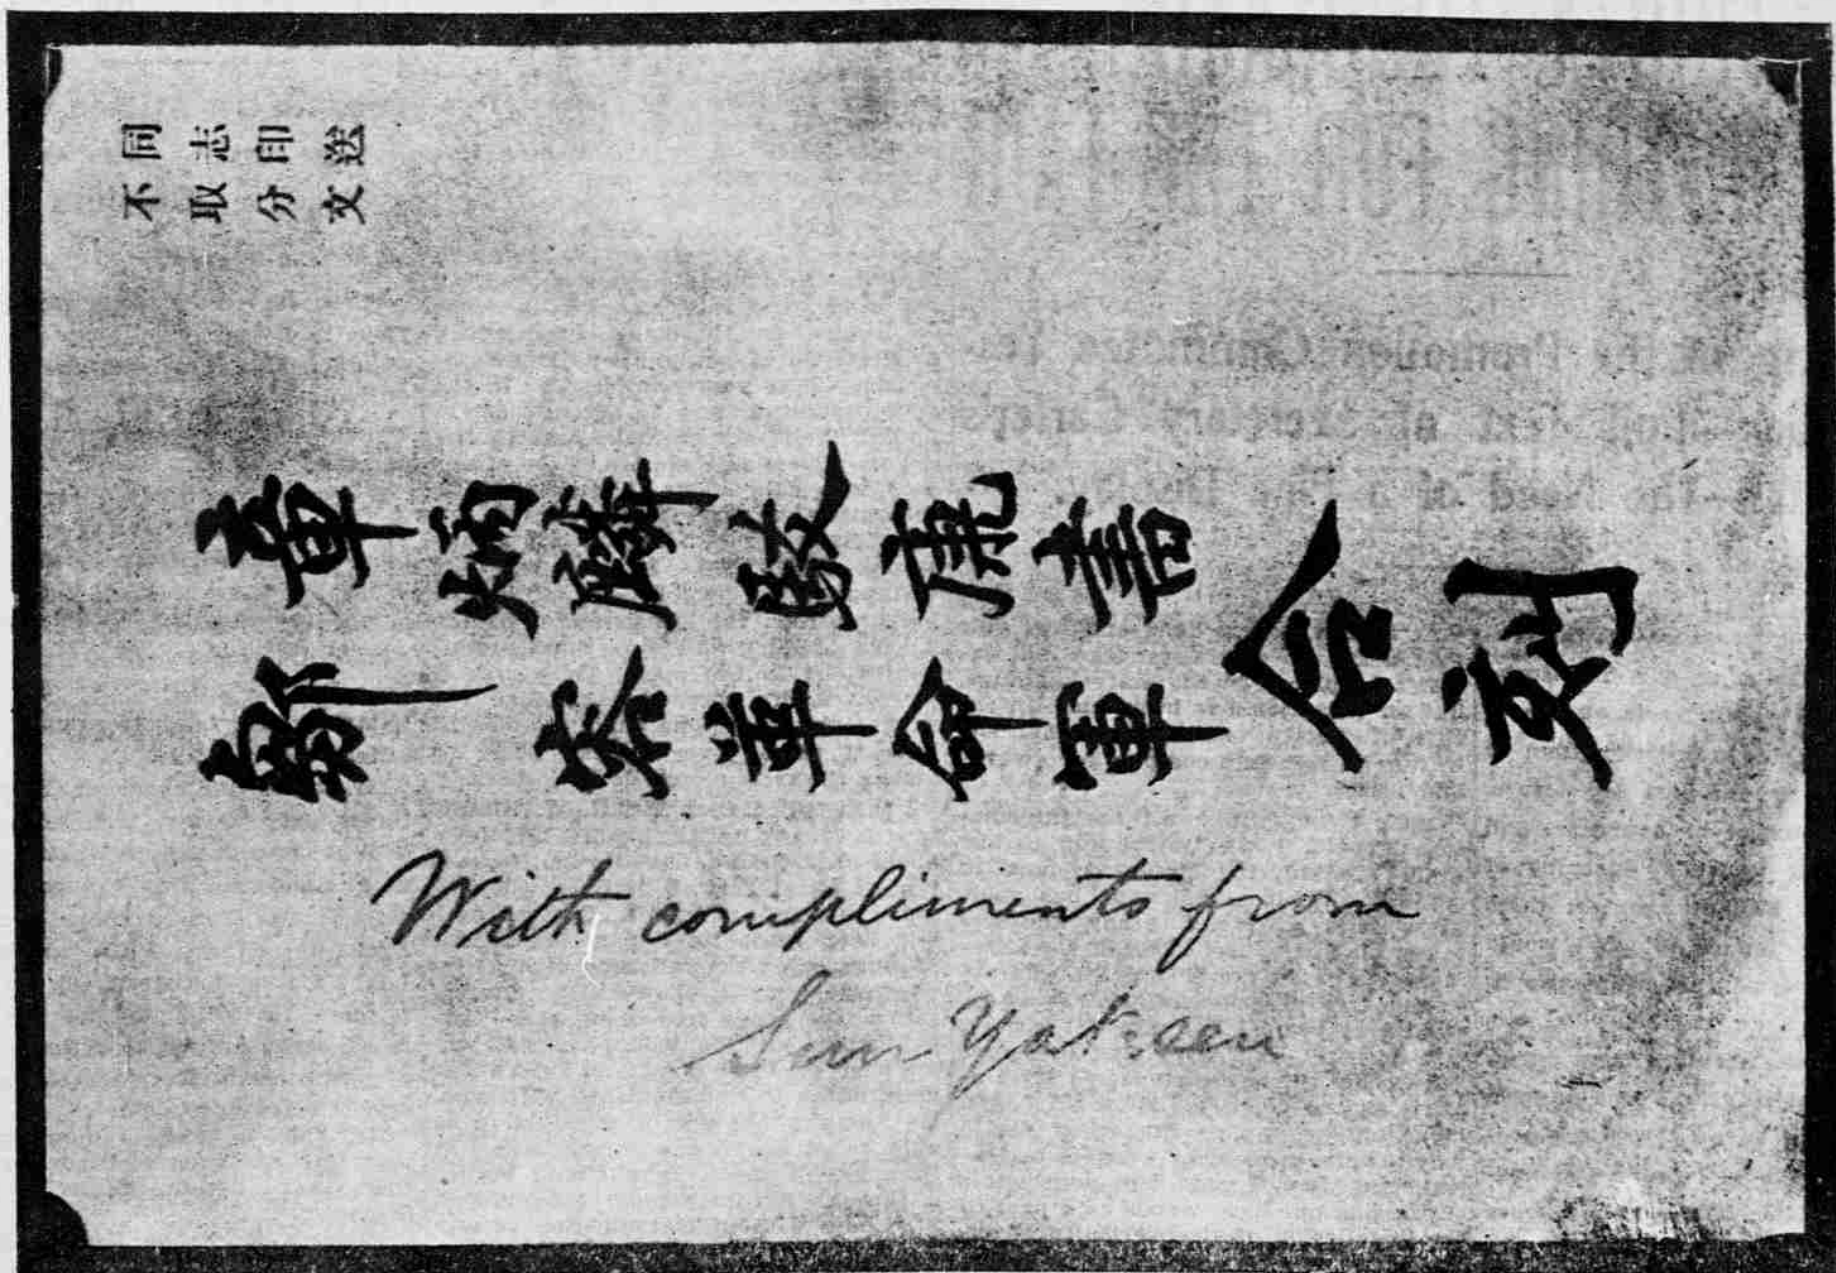 同志印送
不取分文
章炳麟駁康書
鄒容革命軍
合刻
With compliments from
Sun Yat-sen